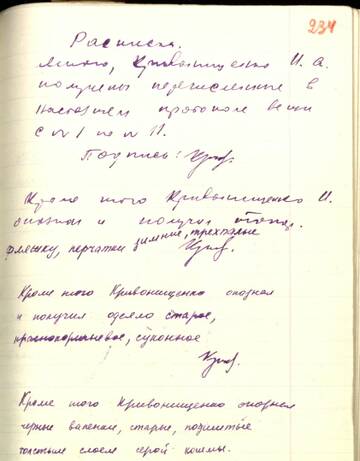 234
Расписка.
Мною, Кривонищенко И. А.
получены перечисленные в
настоящем протоколе вещи
с № 1 по № 11.
Подпись:
Кроме того Кривонищенко И.
опознал и получил
фляжку, перчатки зимние, трехпалые
Кроме того Кривонищенко опознал
и получил одеяло старое,
краснокоричневое, суконное
Кроме того Кривонищенко опознал
черные валенки, старые, подшитые
толстым слоем серой кошмы.